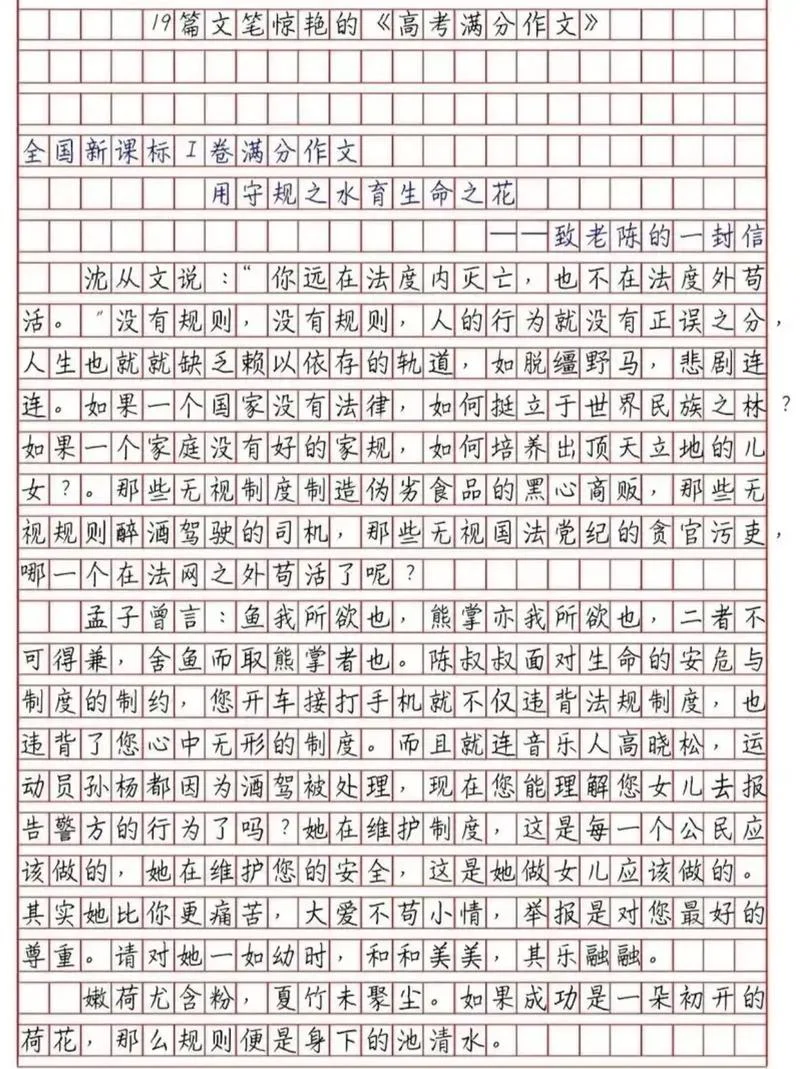 19篇文笔惊艳的《高考满分作文》
全国新课标I卷满分作文
用守规之水育生命之花
——致老陈的一封信
沈从文说:“你远在法度内灭亡,也不在法度外苟
活。”没有规则,没有规则,人的行为就没有正误之分,
人生也就就缺乏赖以依存的轨道,如脱缰野马,悲剧连
连。如果一个国家没有法律,如何挺立于世界民族之林?
如果一个家庭没有好的家规,如何培养出顶天立地的儿
女?。那些无视制度制造伪劣食品的黑心商贩,那些无
视规则醉酒驾驶的司机,那些无视国法党纪的贪官污吏,
哪一个在法网之外苟活了呢?
孟子曾言:鱼我所欲也,熊掌亦我所欲也,二者不
可得兼,舍鱼而取熊掌者也。陈叔叔面对生命的安危与
制度的制约,您开车接打手机就不仅违背法规制度,也
违背了您心中无形的制度。而且就连音乐人高晓松,运
动员孙杨都因为酒驾被处理,现在您能理解您女儿去报
告警方的行为了吗?她在维护制度,这是每一个公民应
该做的,她在维护您的安全,这是她做女儿应该做的。
其实她比你更痛苦,大爱不苟小情,举报是对您最好的
尊重。请对她一如幼时,和和美美,其乐融融。
嫩荷尤含粉,夏竹未聚尘。如果成功是一朵初开的
荷花,那么规则便是身下的池清水。